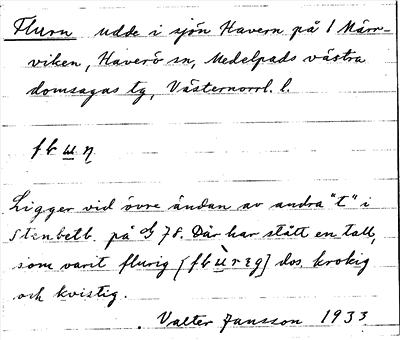 Flurn udde i sjön Havern på 1 Märr-
viken, Haverö sn, Medelpads västra
domsagas tg, Västernorrl. l.
Ligger vid övre ändan av andra "t" i
Stenbetb. på G 78. Där har stått en tall,
som varit flurig dos. krokig
och kvistig.
Valter Jansson 1933